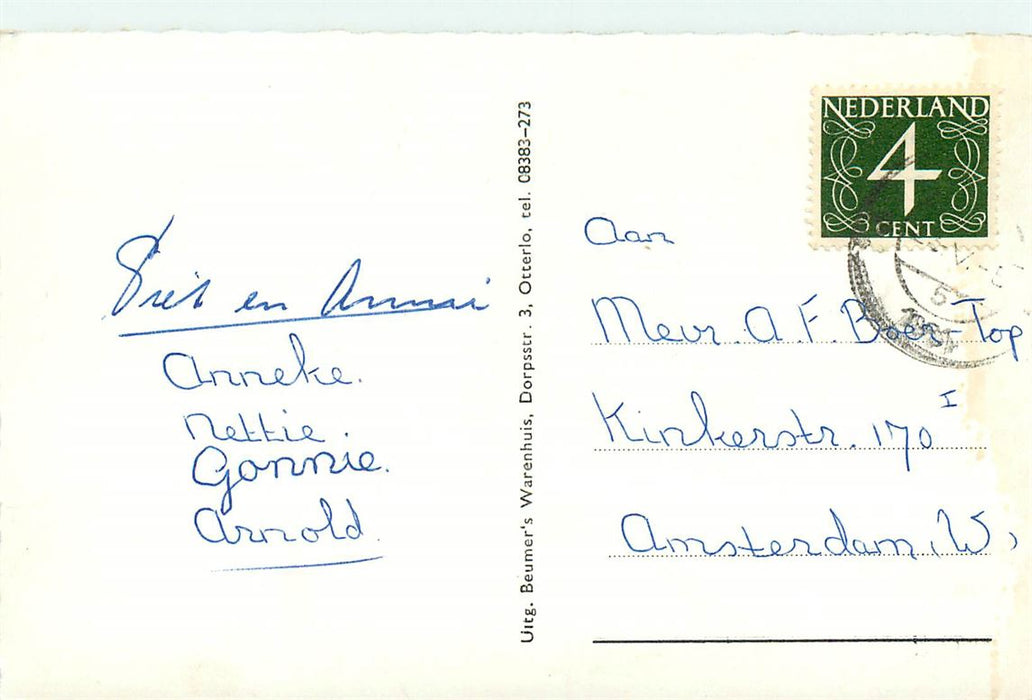 Piet en Annie
Anneke.
Nettie.
Gonnie.
Arnold.
Uitg. Beumer's Warenhuis, Dorpsstr. 3, Otterlo, tel. 08383-273
NEDERLAND
4
CENT
Aan
Mevr. A. F. Boer-Top
Kinkerstr. 170 I
Amsterdam (W)